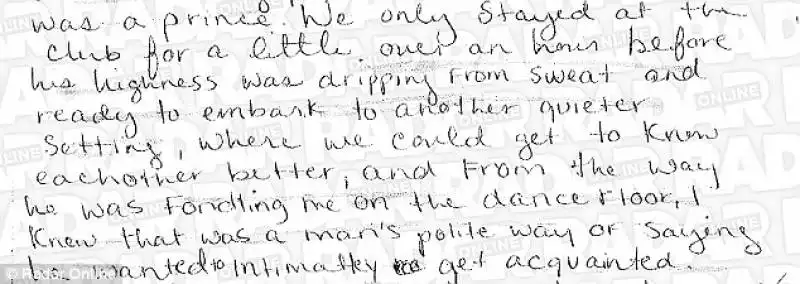 was a prince. We only stayed at the
club for a little over an hour before
his highness was dripping from sweat and
ready to embark to another quieter
setting, where we could get to know
eachother better, and from the way
he was fondling me on the dance floor, I
knew that was a man's polite way of saying
he wanted to intimatley get acquainted.
© Radar Online